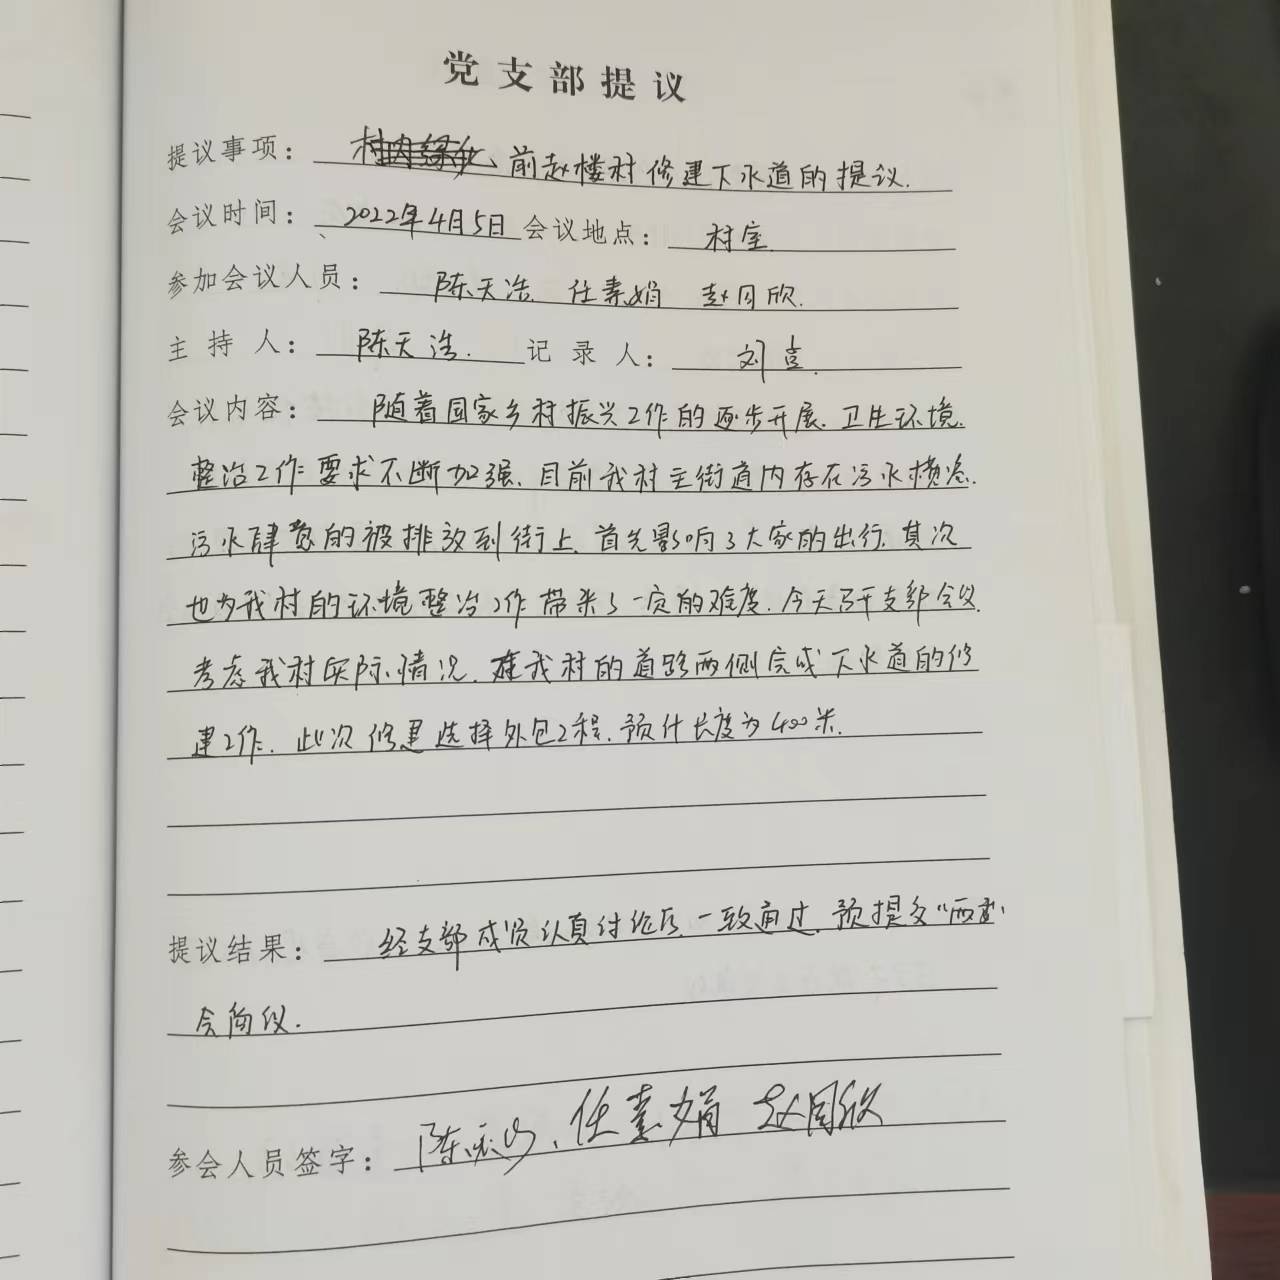 党支部提议
提议事项： 前赵楼村修建下水道的提议.
会议时间： 2022年4月5日 会议地点： 村室
参加会议人员： 陈天浩. 任素娟 赵同欣.
主持人： 陈天浩. 记录人： 刘
会议内容： 随着国家乡村振兴工作的逐步开展. 卫生环境.
整治工作要求不断加强. 目前我村主街道内存在污水横流.
污水肆意的被排放到街上. 首先影响了大家的出行. 其次
也为我村的环境整治工作带来了一定的难度. 今天召开支部会议.
考虑我村实际情况. 在我村的道路两侧完成下水道的修
建工作. 此次修建选择外包工程. 预计长度为400米.
提议结果： 经支部成员认真讨论后. 一致通过. 预提交“两委”
会商议.
参会人员签字： 任素娟 赵同欣